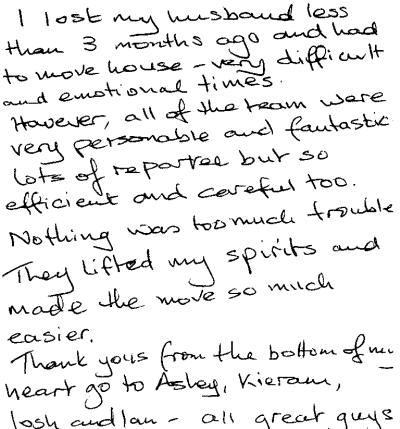 I lost my husband less
than 3 months ago and had
to move house - very difficult
and emotional times.
However, all of the team were
very personable and fantastic
lots of repartee but so
efficient and careful too.
Nothing was too much trouble
They lifted my spirits and
made the move so much
easier.
Thank yous from the bottom of my
heart go to Ashey, Kieram,
Josh and Ian - all great guys